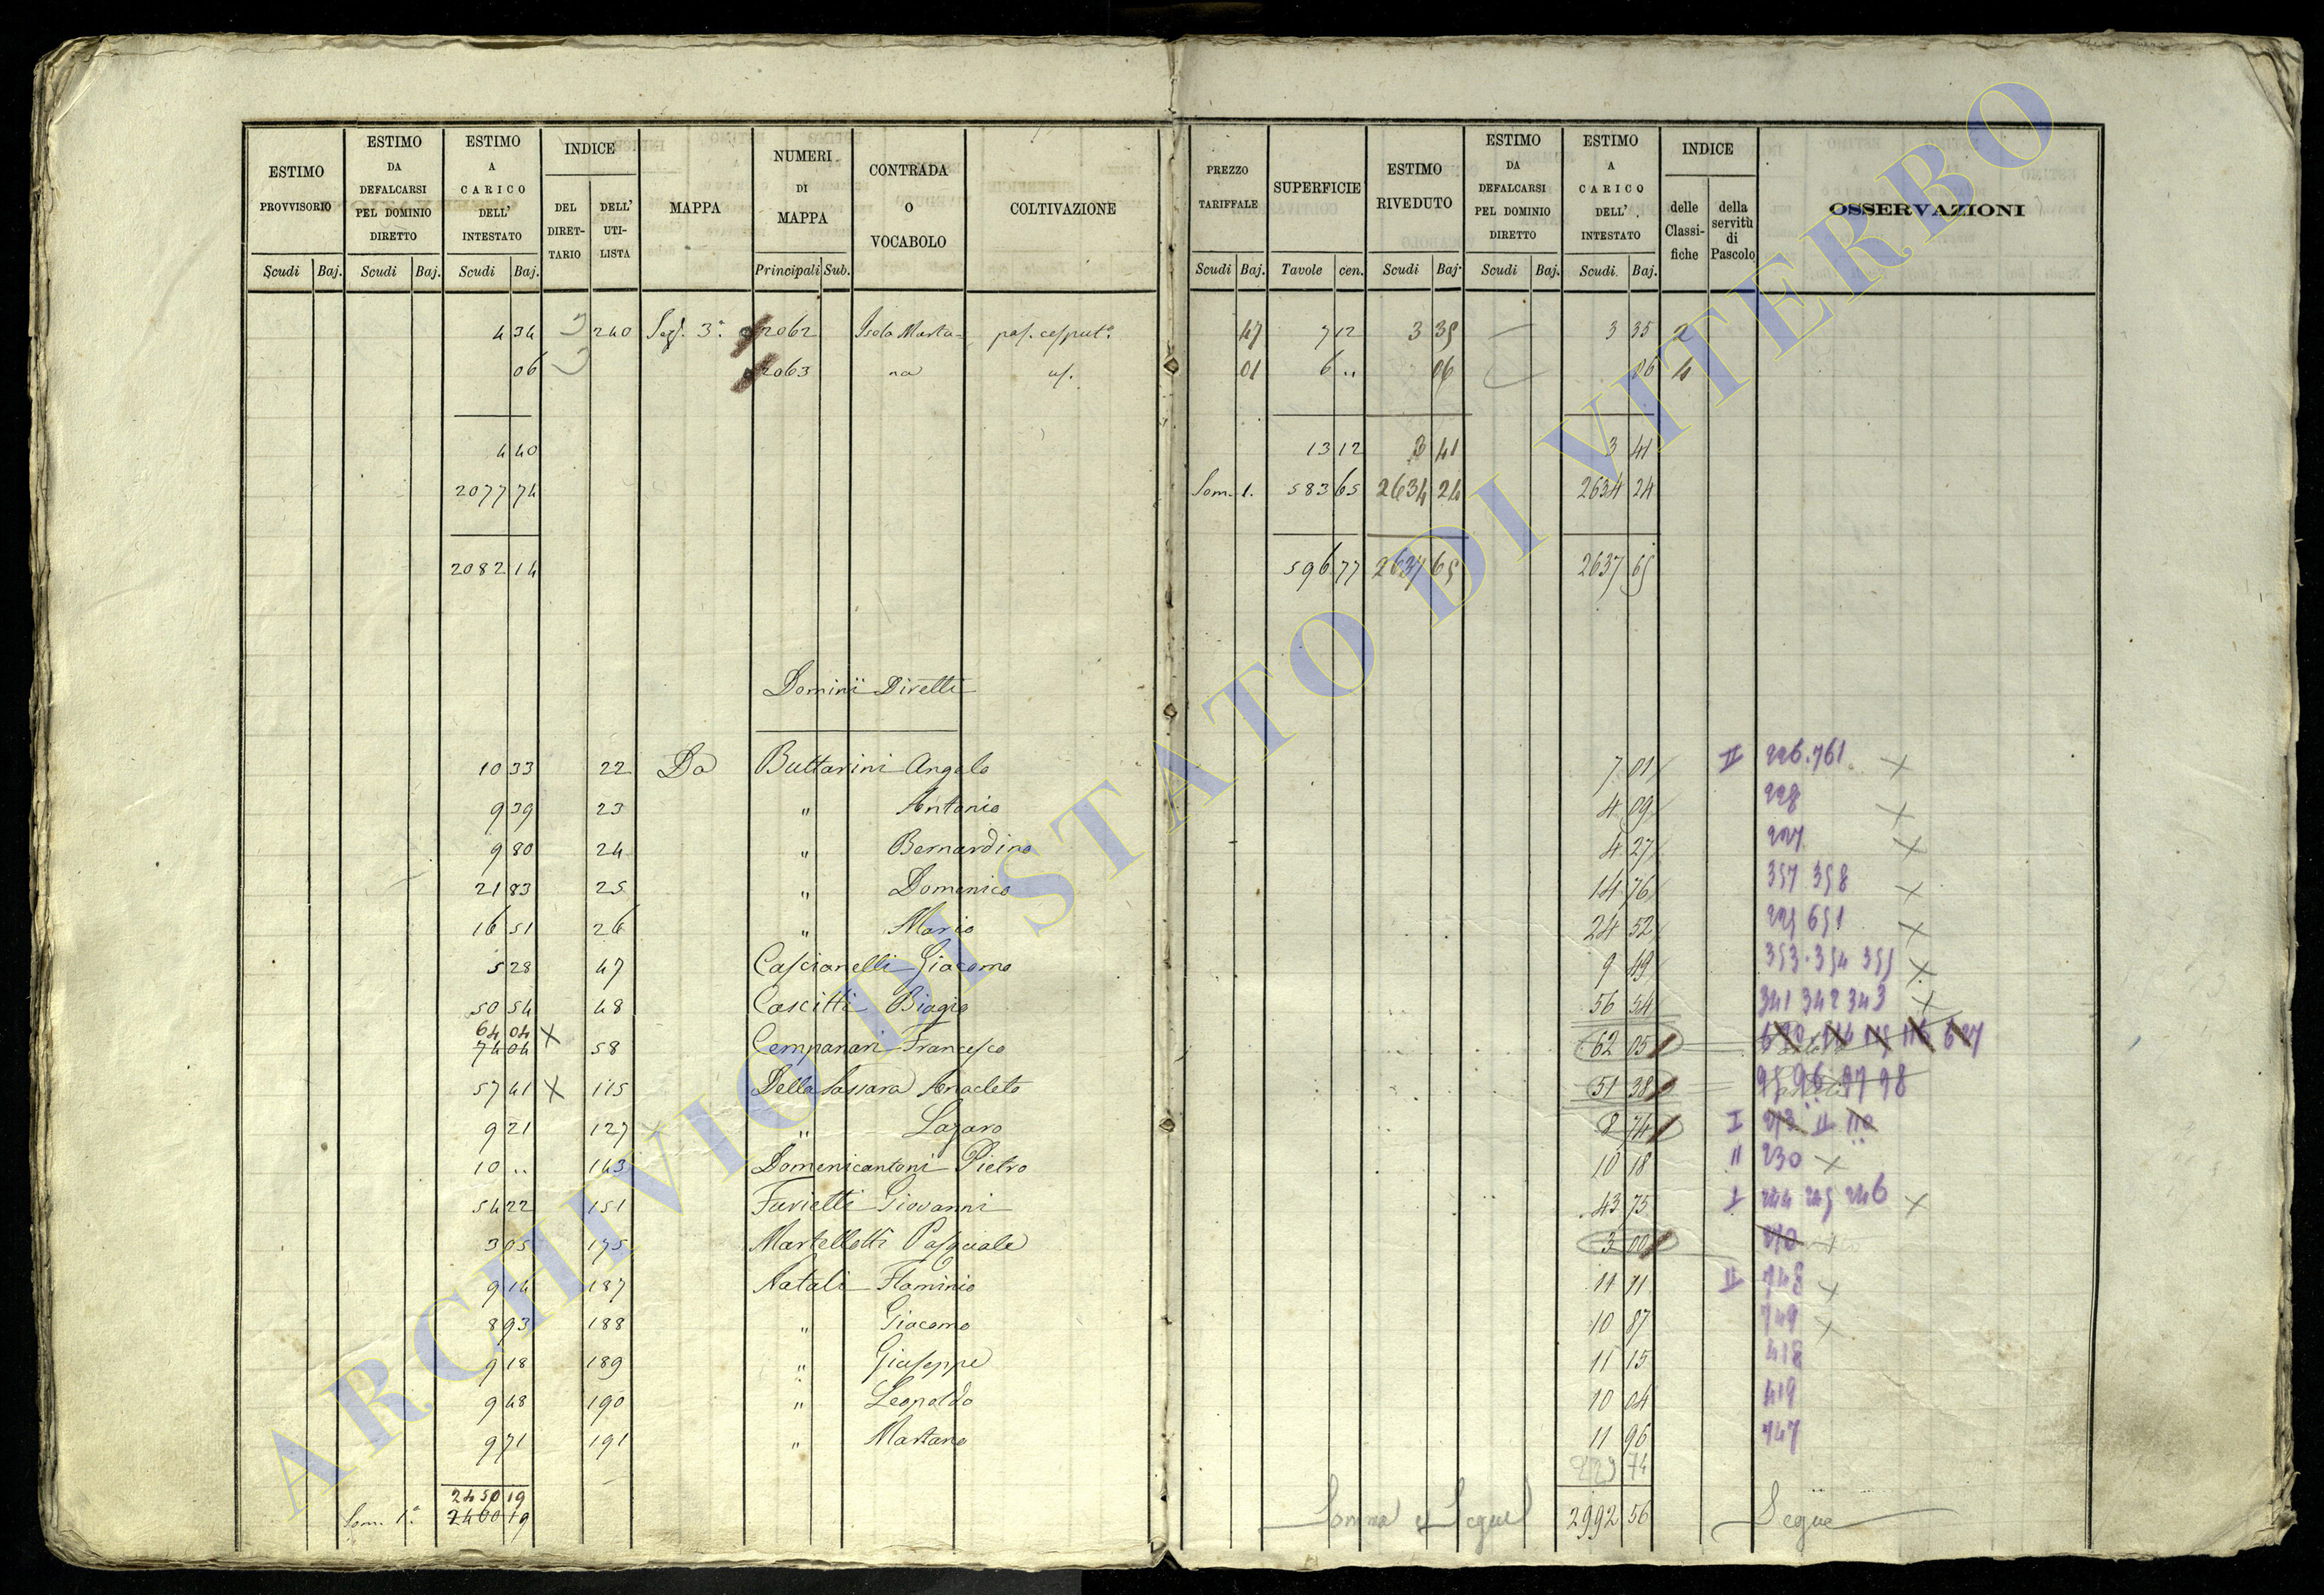 ESTIMO PROVVISORIO
ESTIMO DA DEFALCARSI PEL DOMINIO DIRETTO
ESTIMO A CARICO DELL' INTESTATO
INDICE
DEL DIRET-TARIO
DELL' UTI-LISTA
MAPPA
NUMERI DI MAPPA
CONTRADA O VOCABOLO
COLTIVAZIONE
PREZZO TARIFFALE
SUPERFICIE
ESTIMO RIVEDUTO
ESTIMO DA DEFALCARSI PEL DOMINIO DIRETTO
ESTIMO A CARICO DELL' INTESTATO
INDICE
delle Classi-fiche
della servitù di Pascolo
OSSERVAZIONI
Scudi Baj. Scudi Baj. Scudi Baj. Principali Sub. Scudi Baj. Tavole cen. Scudi Baj. Scudi Baj. Scudi Baj.
4 34 240 Sez. 3ª 2062 Isola Marta- pas. cesput.º 47 7 12 3 35 3 35 2
06 2063 na id. 01 6 .. 06 06 4
4 40 13 12 3 41 3 41
2077 74 Som. 1. 583 65 2634 24 2634 24
2082 14 596 77 2637 65 2637 65
Dominii Diretti
10 33 22 Da Buttarini Angelo 7 01 II 226.761 X
9 39 23 " Antonio 4 09 228 X
9 80 24 " Bernardino 4 27 227 X
21 83 25 " Domenico 14 76 357 358 X
16 51 26 " Mario 24 52 225 651 X
5 28 47 Cascianelli Giacomo 9 49 353.354 355 X
50 54 48 Cascitti Biagio 56 54 341 342 343 X
64 04 X
74 04 58 Cempanari Francesco 62 05 627
57 41 X 115 Della Sassara Anacleto 51 38 95 96 97 98
9 21 127 " Lazaro 8 74 I 213 II 110
10 .. 143 Domenicantoni Pietro 10 18 II 230 X
54 22 151 Favietti Giovanni 43 75 I 244 245 246 X
3 05 175 Martellotti Pasquale 3 00 210
9 14 187 Natali Flaminio 11 11 II 748 X
8 93 188 " Giacomo 10 87 749 X
9 18 189 " Giuseppe 11 15 418
9 48 190 " Leopoldo 10 04 419
9 71 191 " Martano 11 96 747
2450 19
Som. 1ª 2460 19 Somma e Segue 2992 56 Segue
ARCHIVIO DI STATO DI VITERBO